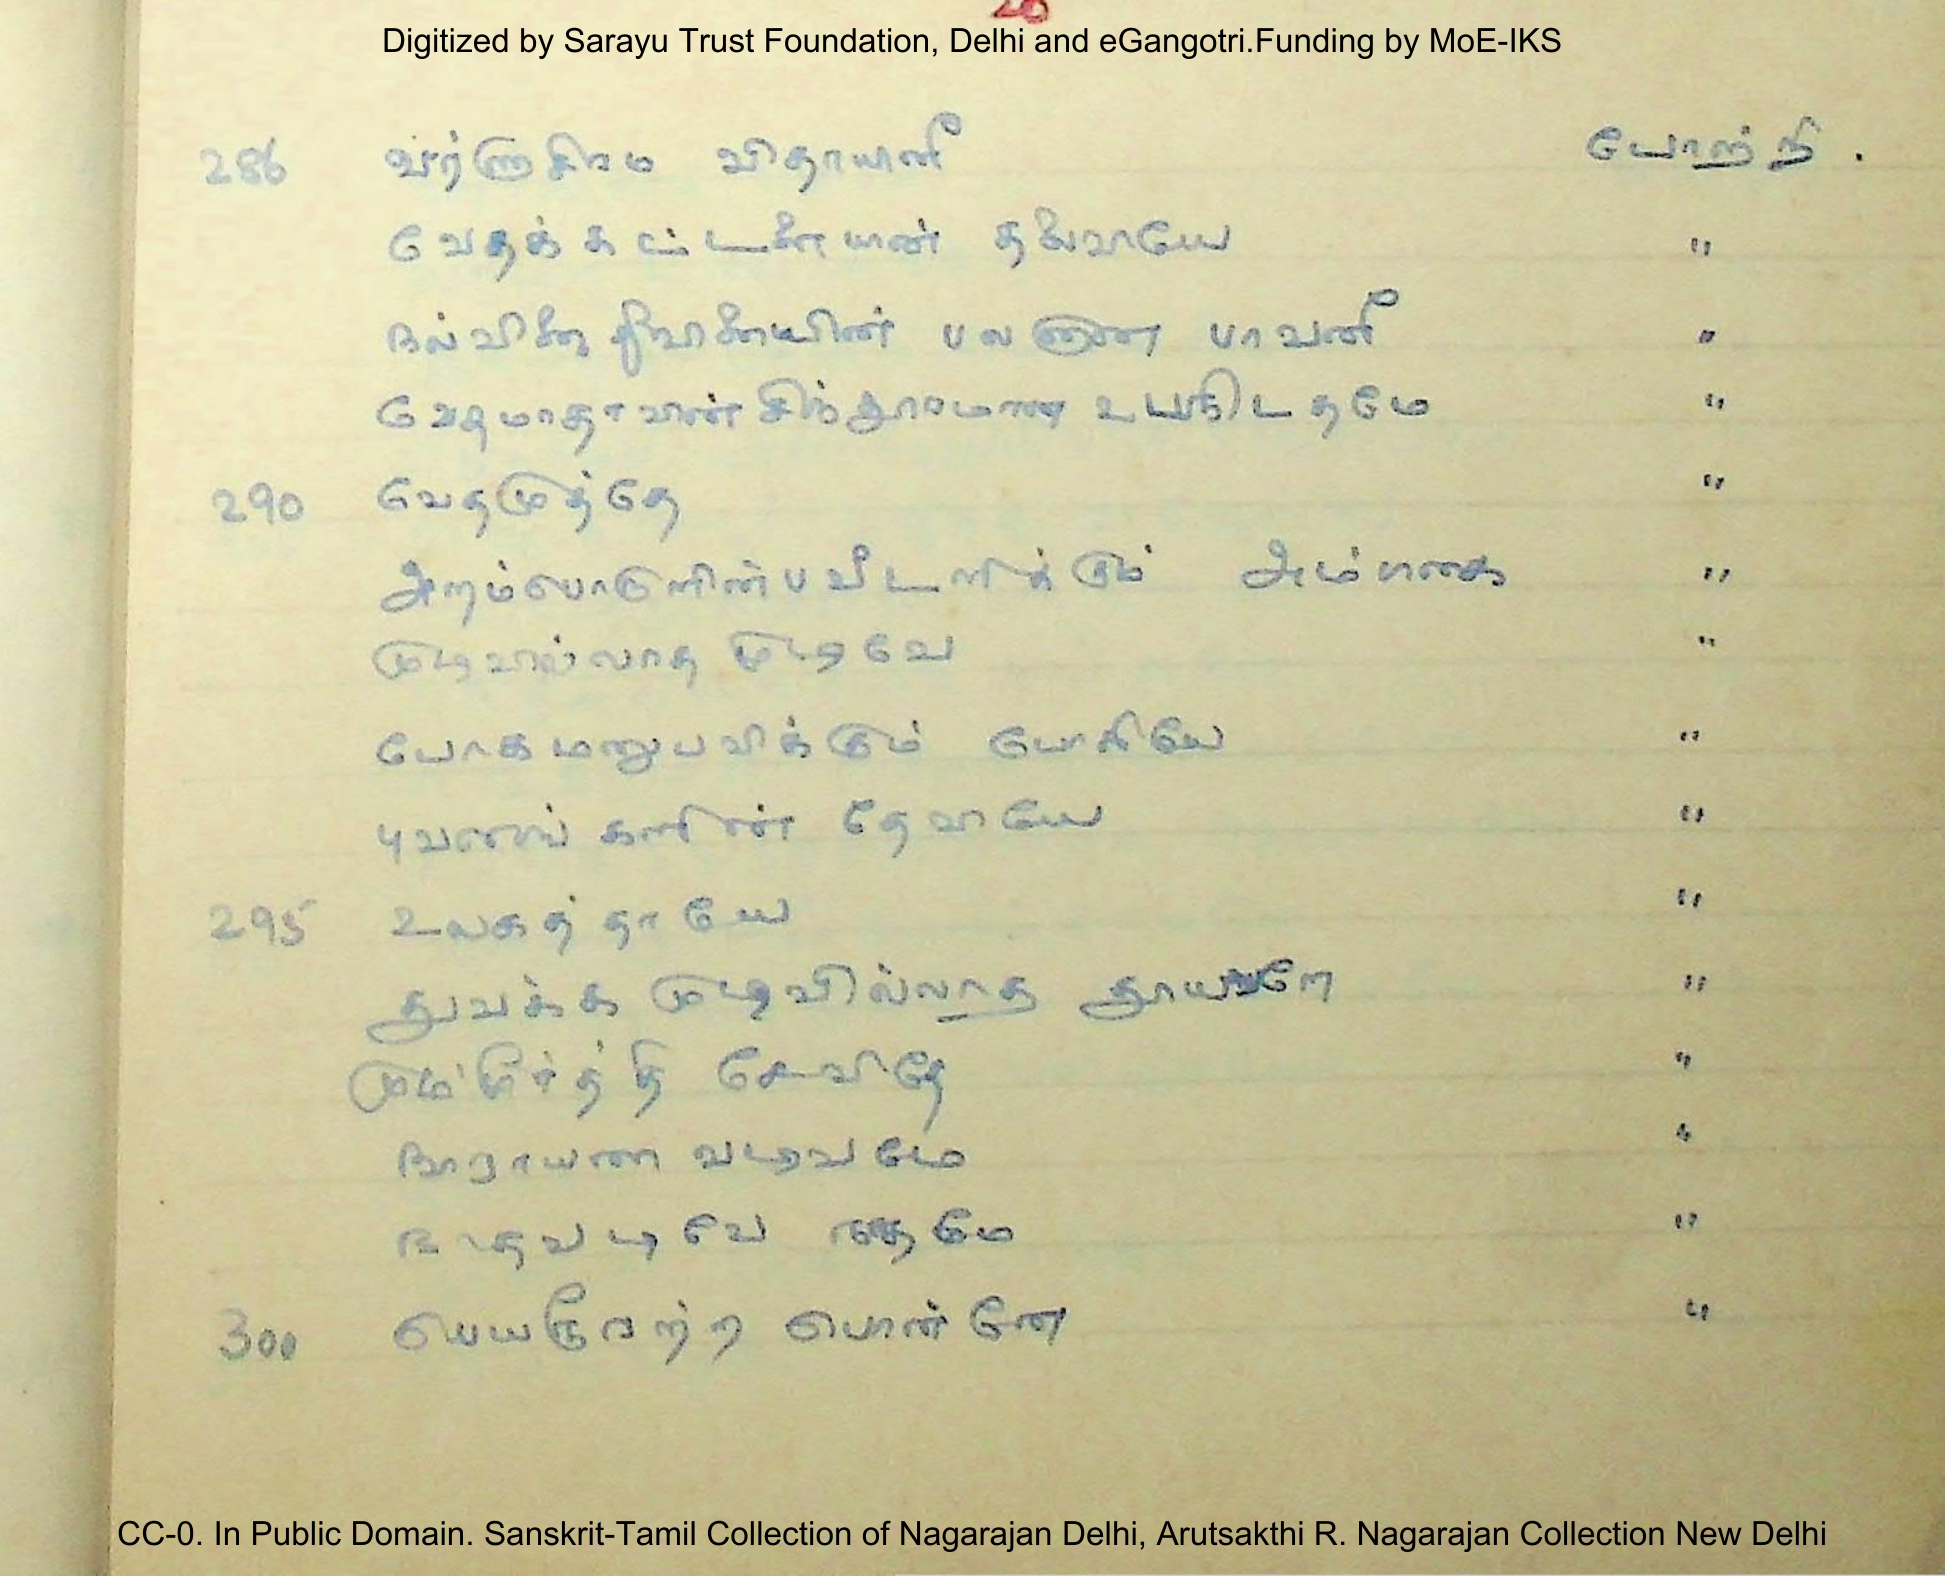 Digitized by Sarayu Trust Foundation, Delhi and eGangotri.Funding by MoE-IKS
286 வர்ணாசிரம விதாயனீ போற்றி .
வேதக் கட்டளையின் தலைவாயே "
நல்வினை தீவினையின் பலனான பாவனீ "
வேதமாதாவின் சிந்தூரமான "
290 வேதமுத்தே "
அறம்பொருளின்பவீடளிக்கும் அம்பிகை "
முடிவில்லாத முடிவே "
யோகமனுபவிக்கும் யோகியே "
புவனங்களின் தேவியே "
295 உலகத் தாயே "
துவக்க முடிவில்லாத "
மும்மூர்த்தி சேவிதே "
நாராயண வடிவமே "
நாதவடிவே "
300 பெயருவற்ற பொன்னே "
CC-0. In Public Domain. Sanskrit-Tamil Collection of Nagarajan Delhi, Arutsakthi R. Nagarajan Collection New Delhi